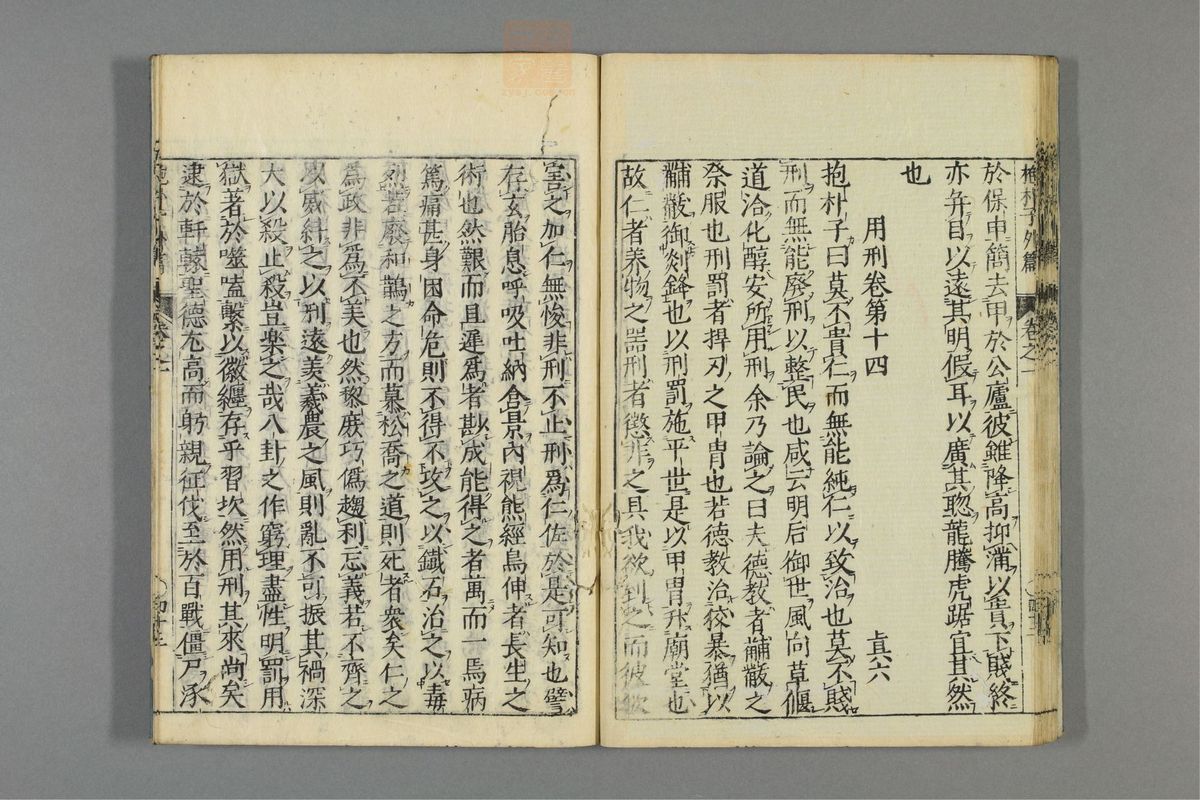 抱朴子外篇 卷之一
於保申簡去甲於公廬彼雖降高抑滿以貴下賤終
亦弁目以遠其明假耳以廣其聡龍騰虎踞宜其然
也
用刑卷第十四 真六
抱朴子曰莫不貴仁而無能純仁以致治也莫不賤
刑而無能廃刑以整民也咸云明后御世風向草偃
道洽化醇安所用刑余乃論之曰夫德教者黼黻之
祭服也刑罰者捍刃之甲冑也若德教治狡暴猶以
黼黻御剡鋒也以刑罰施平世是以甲冑升廟堂也
故仁者养物之器刑者懲非之具我欲利之而彼欲
害之加仁無悛非刑不止刑爲仁佐於是可知也譬
存玄胎息呼吸吐納含景內視熊經鳥伸者長生之
術也然艱而且遲爲者尠成能得之者萬而一焉病
篤痛甚身困命危則不得不攻之以鐵石治之以毒
烈若廢和鵲之方而慕松喬之道則死者衆矣仁之
爲政非爲不美也然黎庶巧偽趨利忘義若不齊之
以威糾之以刑遠羨羲農之風則亂不可振其禍深
大以殺止殺豈楽之哉八卦之作窮理盡性明罰用
獄著於噬嗑繫以徽纆存乎習坎然用刑其來尚矣
逮於軒轅聖德尤高而躬親征伐至於百戰僵尸涿